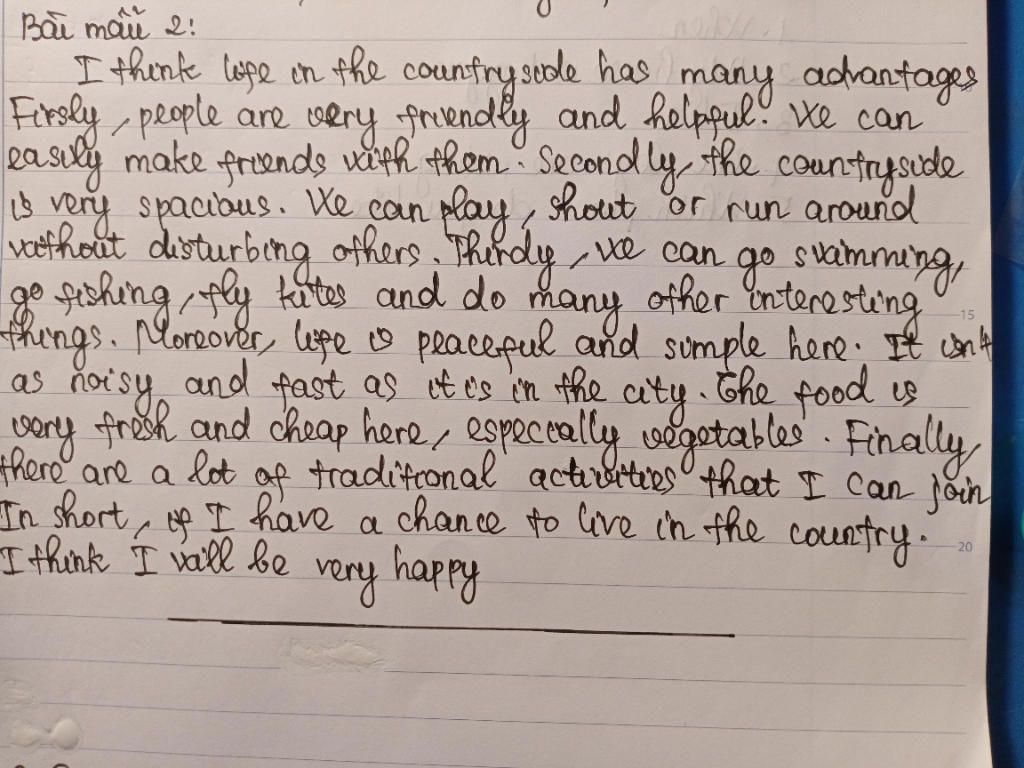 Bài mẫu 2:
I think life in the countryside has many advantages
Firsly, people are very friendly and helpful. We can
easily make friends with them. Secondly, the countryside
is very spacious. We can play, shout or run around
without disturbing others. Thirdy, we can go swimming,
go fishing, fly kites and do many other interesting
things. Moreover, life is peaceful and simple here. It isn't
as noisy and fast as it is in the city. The food is
very fresh and cheap here, especcally vegetables. Finally,
there are a lot of traditional activities that I can join
In short, if I have a chance to live in the country.
I think I will be very happy
15
20